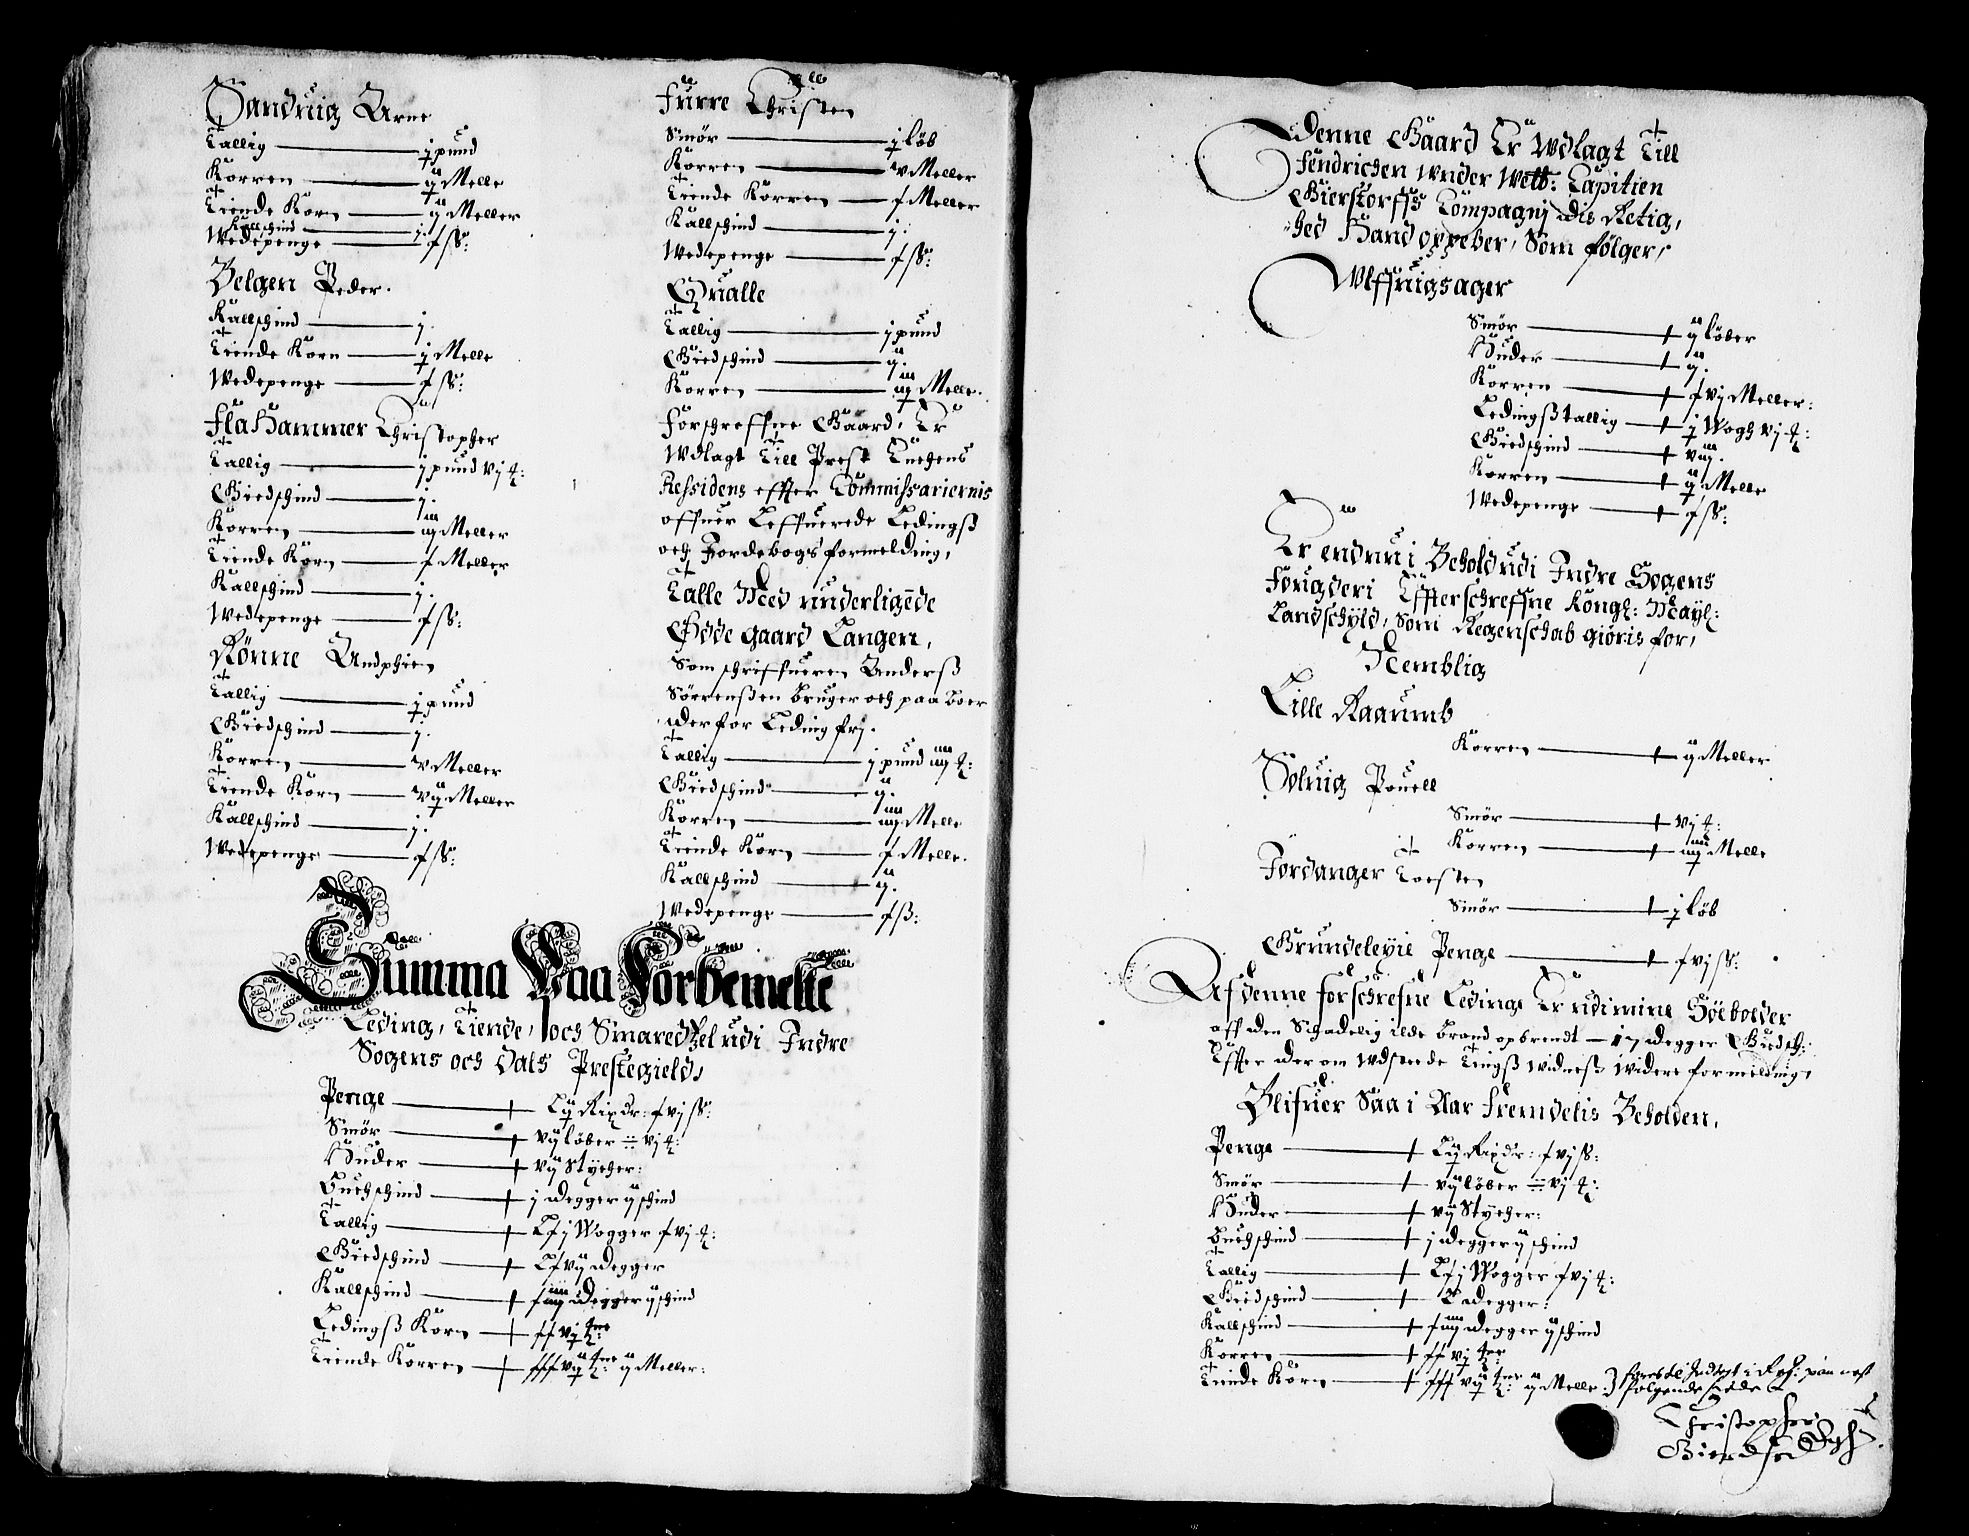 Sanduig Arne
Tallig — j pund
Korren — ij Melle
Tiende Korn — ij Meller
Kallschind — j.
Wedepenge — x ſſ:
Belgen Peder.
Kallschind — j.
Tiende Korn — j Melle
Wedepenge — x ſſ:
Fla Hammer Christopher
Tallig — j pund vj ℔:
Giedschind — j.
Korren — iij Meller
Tiende Korn — x Meller
Kallschind — j.
Wedepenge — x ſſ:
Rønne
Tallig — j pund
Giedschind — j.
Korren — v Meller
Tiende Korn — vij Meller
Kallschind — j.
Wedepenge — x ſſ:
Furre Christen
Smør — j løb
Korren — v Meller
Tiende Korren — x Meller
Kallschind — j.
Wedepenge — x ſſ:
Qualle
Tallig — j pund
Giedschind — ij.
Korren — iij Melle.
Forschreffne Gaard, Er
Udlagt Till Prest Enchens
Ressidens effter Commissariernis
offuer Leffuerede Ledingß
och Jordebogs formelding,
Talle Med underligede
Øde gaard Langen,
Som schriffueren Anderß
Sørrenßen bruger och paa boer
derfor Leding fri.
Tallig — j pund iiij ℔:
Giedschind — ij.
Korren — iiij Melle
Tiende Korn — x Melle.
Kallschind — ij.
Wedepenge — x ß:
Summa Paa Forbemelte
Leding, Tiende, och Smaredzel udi Indre
Sogens och Dals Prestegield,
Penge — Lij Rixdr: xvj ſſ:
Smør — vij løber — vj ℔:
Huder — vij Stycher:
Buchschind — j degger ij schind
Tallig — Lxj Wogger xvj ℔:
Giedschind — Lxvij degger
Kallschind — xiiij degger ij schind
Ledingß Korn — xxvj tnr:
Tiende Korren — xxxvij tnr: ij Meller:
Denne Gaard Er Udlagt Till
Fendrichen under Welb: Capitien
Gierstorffs Compagnj dis Retig,
hed Hand oppeber, Som følger,
Ulffuigsager
Smør — ij løber
Huder — ij.
Korren — xvj Meller:
Ledingßtallig — j Wogh vj ℔:
Giedschind — viij.
Korren — ij Melle
Wedepenge — x ſſ:
Er endnu i Behold udi Indre Sogens
Fougderi Effterschreffne Kongl: Mayl:
Landschyld, Som Regenschab giøris for,
Nemblig
Lille Raaumb
Korren — ij Meller
Soluig Pouell
Smør — vj ℔:
Korren — iiij Melle
Jordanger Torsten
Smør — j løb
Grundeleyie Penge — xvj ſſ:
Af denne forschrefne Ledinge Er udi mine Søeboeder
aff den Schadelig ilde brand opbrendt — 17 degger Giedsch:
Effter der om udsteede Tingß widneß widere formelding,
Blifuer Saa i Aar fremdelis Beholden,
Penge — Lij Rixdr: xvj ſſ:
Smør — vij løber — vj ℔:
Huder — vij Stycher:
Buchschind — j degger ij schind
Tallig — Lxj Wogger xvj ℔:
Giedschind — L degger:
Kallschind — xiiij degger ij schind
Korren — xxvj tnr
Tiende Korn — xxxvij tnr: ij Melle
følgende side
Christopher